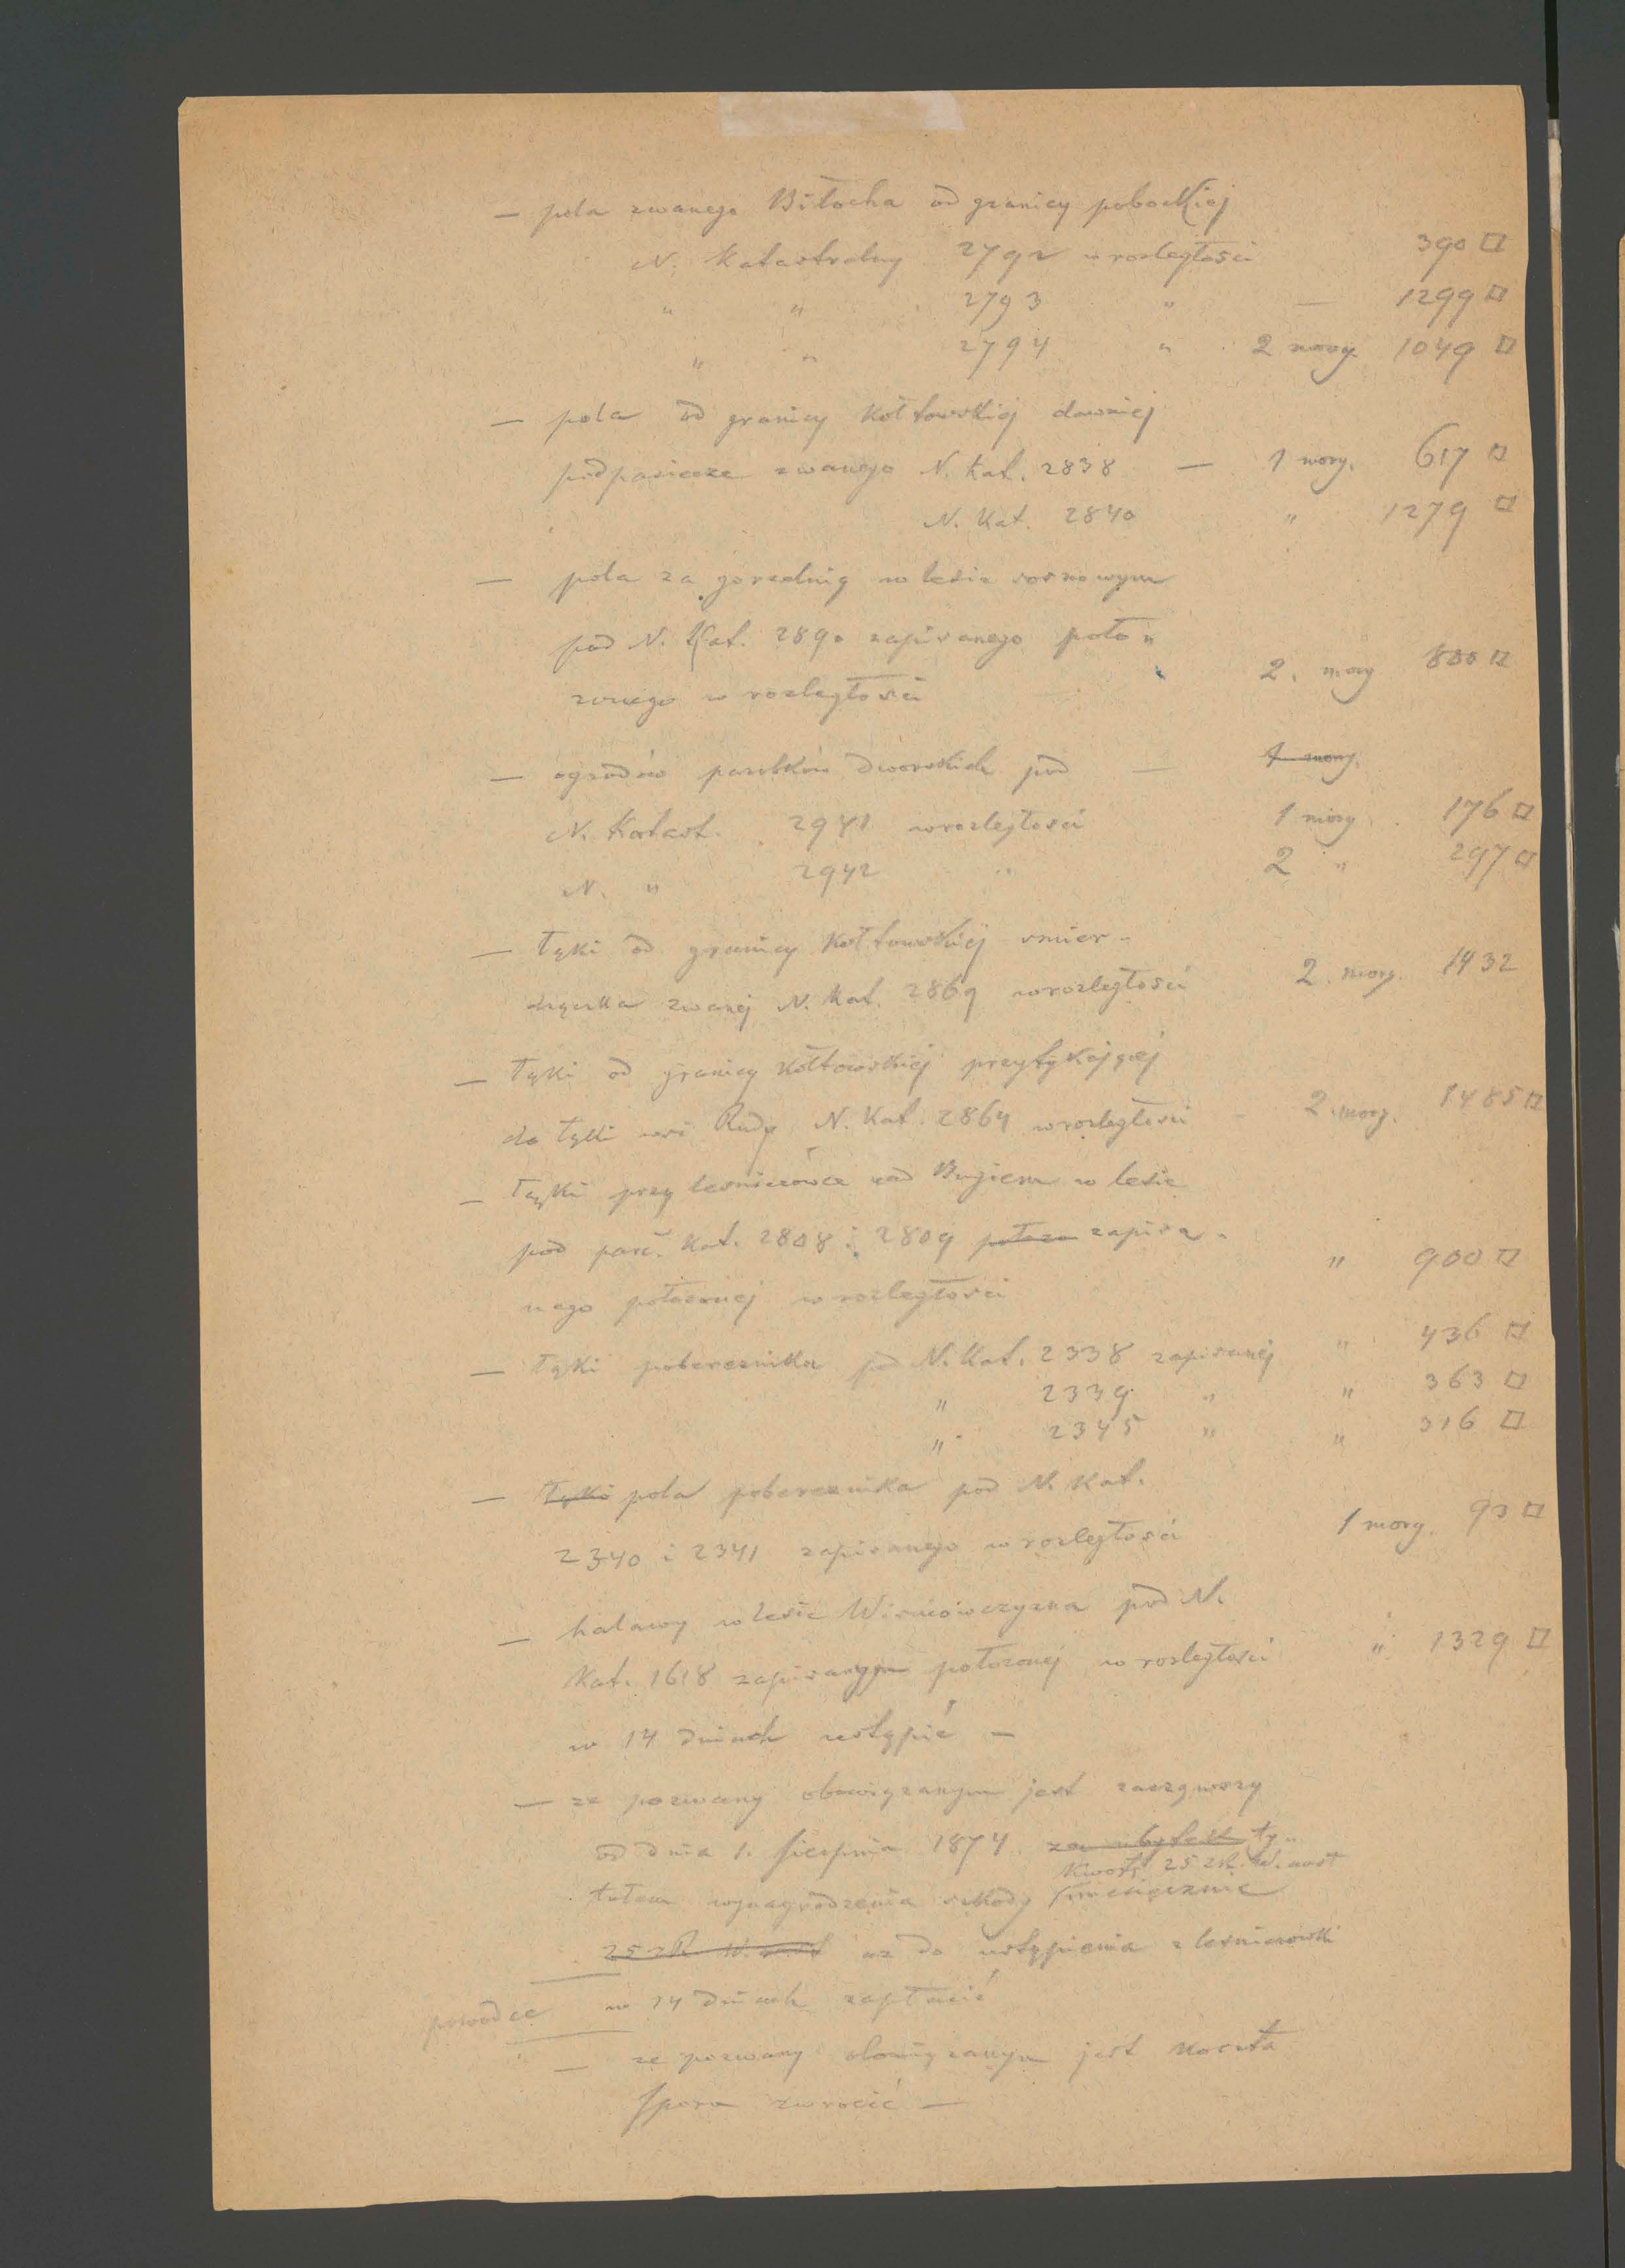 — pola zwanego Biłocha od granicy pobockiej
N. Katastralny 2792 w rozległości 390 □
" " 2793 " — 1299 □
" " 2794 " 2 morg. 1049 □
— pola od granicy Kołtowskiej dawniej
podpasiecze zwanego N. Kat. 2838 — 1 morg. 617 □
N. Kat. 2840 " 1279 □
— pola za gorzelnią w lesie sosnowym
pod N. Kat. 2890 zapisanego poło„
zonego w rozległości 2. morg 800 □
— ogrodów parobków dworskich pod — 1 morg.
N. Katast. 2941 w rozległości 1 morg. 176 □
N. " 2942 " 2 " 297 □
— łąki od granicy Kołtowskiej smier-
zwanej N. Kat. 2869 w rozległości 2. morg. 1432
— łąki od granicy Kołtowskiej przytykającej
do łąki wsi Rudy N. Kat. 2864 w rozległości 2. morg. 1485 □
— łąki przy lesniczówce nad Bugiem w lesie
pod parc. Kat. 2808 i 2809 zapisa-
nego położonej w rozległości " 900 □
— łąki pobereznika pod N. Kat. 2338 zapisanej " 436 □
" 2339 " " 363 □
" 2345 " " 316 □
— łąki pola pobereznika pod N. Kat.
2340 i 2341 zapisanego w rozległości 1 morg. 93 □
— halawy w lesie Wisniowczyzna pod N.
Kat. 1618 zapisanym położonej w rozległości " 1329 □
w 14 dniach ustąpić —
— ze pozwany obowiązanym jest zacząwszy
od dnia 1. Sierpnia 1874 za ubytek ty„
Kwotę 25 zł. w. aust
tułem wynagrodzenia szkody miesięcznie
25 zł w. aust az do ustąpienia z lesniczowki
powodce w 14 dniach zapłacić
— ze pozwany obowiązanym jest koszta
sporu zwrocić —